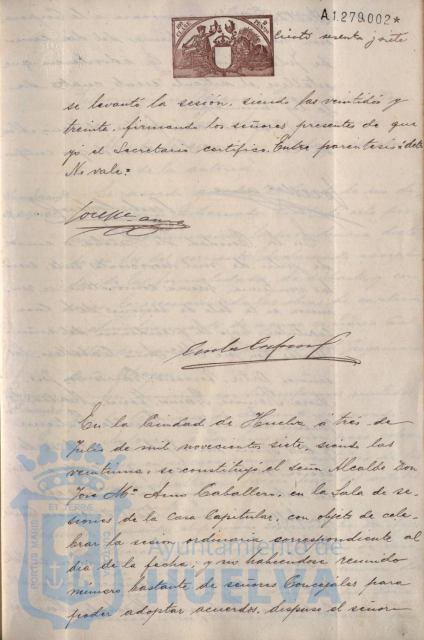 A1.279.002*
ciento sesenta y siete
se levantó la sesión, siendo las veintidós y
treinta, firmando los señores presentes de que
yó el Secretario certifico. Entre parentesis
No vale=
En la Ciudad de Huelva á tres de
Julio de mil novecientos siete, siendo las
veintiuna, se constituyó el señor Alcalde Don
José Mª. Amo Caballero, en la Sala de se-
siones de la Casa Capitular, con objeto de cele-
brar la sesión ordinaria correspondiente al
día de la fecha; y no habiendose reunido
número bastante de señores Concejales para
poder adoptar acuerdos, dispuso el señor
Ayuntamiento de
HUELVA